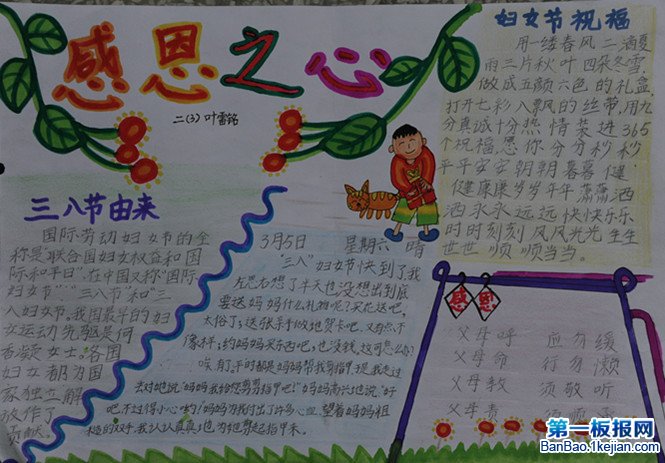 感恩之心
二(3) 叶雷铭
三八节由来
国际劳动妇女节的全
称是"联合国妇女权益和国
际和平日"。在中国又称"国际
妇女节""三八节"和"三
八妇女节。我国最早的妇
女运动先驱是何
香凝女士。各国
妇女都为国
家独立解
放作了
贡献。
3月5日 星期六 晴
"三八"妇女节快到了我
左思右想了半天也没想出到底
要送妈妈什么礼物呢?买花送吧,
太俗了;送张亲手做地贺卡吧,又有点不
像样;约妈妈买东西吧,也没钱,这可怎么办?
咦,有了,平时都是妈妈帮我剪指甲,
去对她说:"妈妈我给您剪剪指甲吧!"妈妈高兴地说:"好
吧,不过得小心哟!妈妈为我付出了许多心血,望着妈妈粗
糙的双手,我认认真真地为她剪起指甲来。
妇女节祝福
用一缕春风二滴夏
雨三片秋叶四朵冬雪,
做成五颜六色的礼盒,
打开七彩八飘风的丝带,用九
分真诚十分热情装进365
个祝福,愿你分分秒秒
平平安安朝朝暮暮健
健康康岁岁年年潇潇洒
洒永永远远快快乐乐
时时刻刻风风光光生生
世世顺顺当当。
感恩
父母呼 应勿缓
父母命 行勿懒
父母教 须敬听
父母责 须顺承
第一板报网
BanBao.1kejian.com